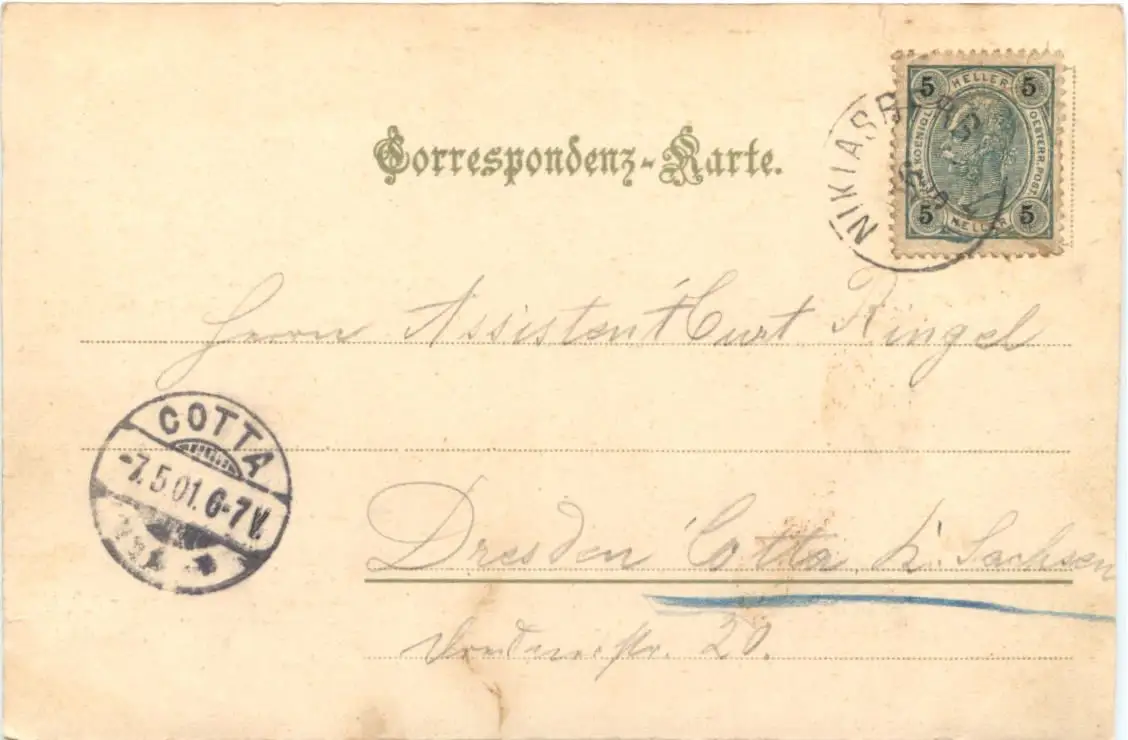 Correspondenz-Karte.
5 HELLER 5
KOENIGL. OESTERR. POST.
5 HELLER 5
NIKLASB
Herrn Assistent Curt Ringel
COTTA
-7.5.01. 6-7 V.
Dresden Cotta, k. Sachsen
20.